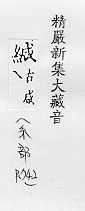 精嚴新集大藏音
緘古咸
(糸部
P.742)